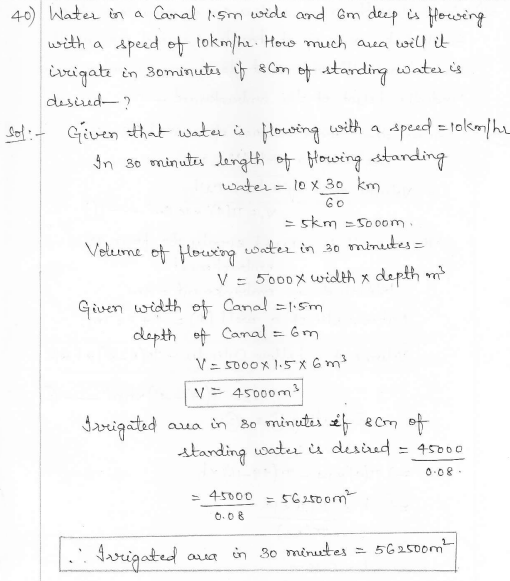 40) Water in a Canal 1.5m wide and 6m deep is flowing
with a speed of 10km/hr. How much area will it
irrigate in 30minutes if 8Cm of standing water is
desired—?
Sol:- Given that water is flowing with a speed = 10km/hr
In 30 minutes length of flowing standing
water = 10 x 30/60 km
= 5km = 5000m.
Volume of flowing water in 30 minutes =
V = 5000 x width x depth m³
Given width of Canal = 1.5m
depth of Canal = 6m
V = 5000 x 1.5 x 6 m³
V = 45000m³
Irrigated area in 30 minutes if 8Cm of
standing water is desired = 45000/0.08.
= 45000/0.08 = 562500m²
∴ Irrigated area in 30 minutes = 562500m²